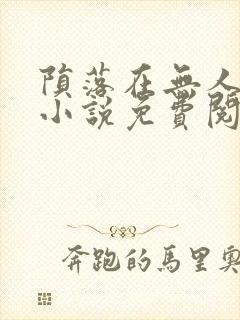 隕落在無人
小說免費閱
奔跑的馬里奧